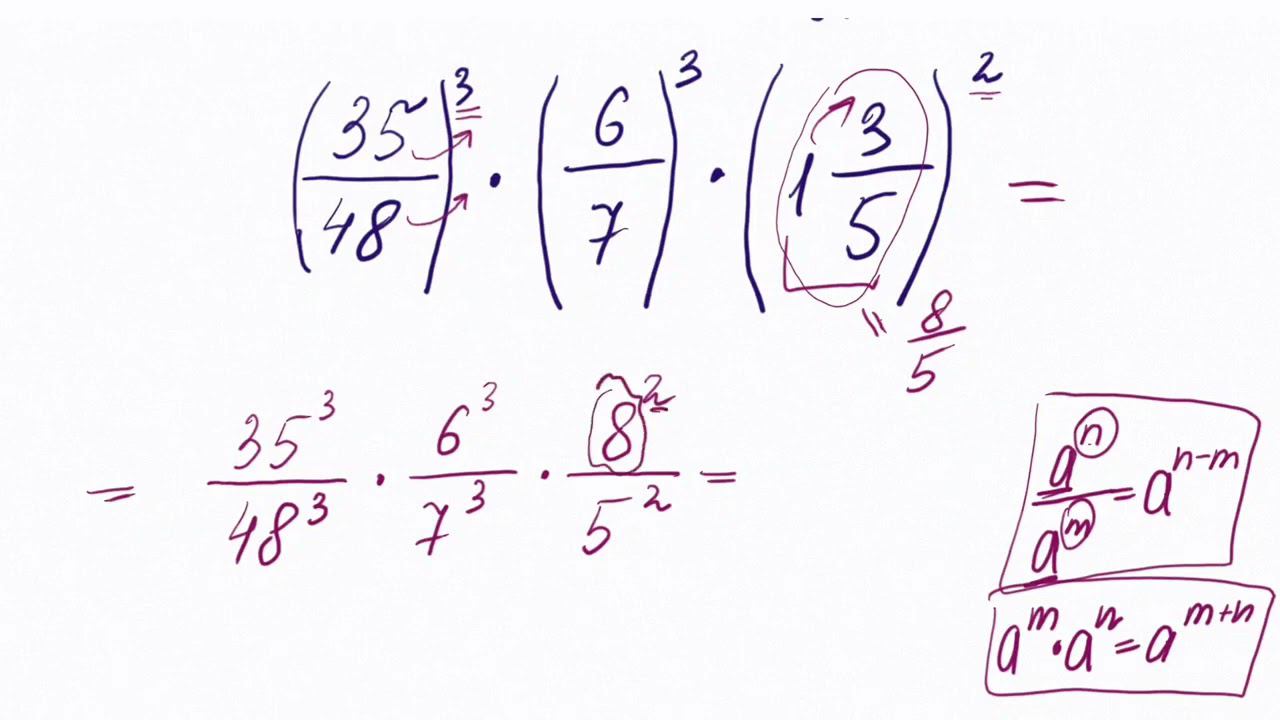 (35/48)³ · (6/7)³ · (1 3/5)² =
= 8/5
= 35³/48³ · 6³/7³ · 8²/5² =
aⁿ/aᵐ = aⁿ⁻ᵐ
aᵐ · aⁿ = aᵐ⁺ⁿ